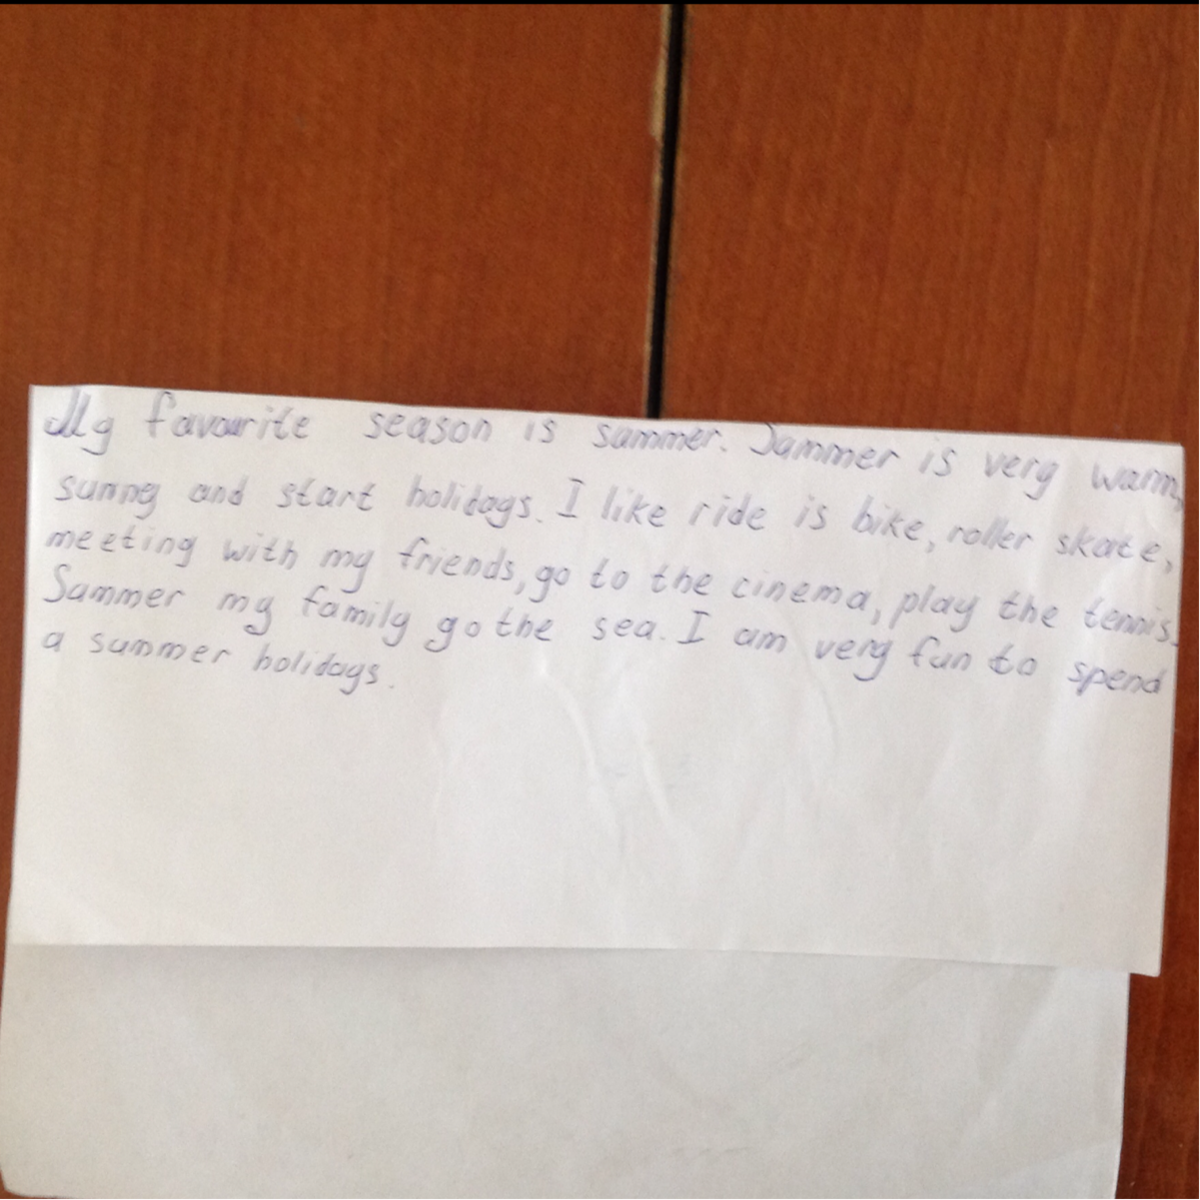 My favourite season is summer. Summer is very warm,
sunny and start holidays. I like ride is bike, roller skate,
meeting with my friends, go to the cinema, play the tennis.
Summer my family go the sea. I am very fun to spend
a summer holidays.